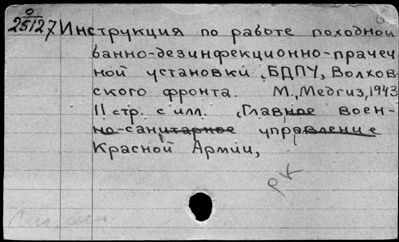 0
25127
Инструкция по работе походной
банно-дезинфекционно-прачеч
ной установки "БДПУ" Волхов
ского фронта. М., Медгиз, 1943
11 стр. с илл. (Главное воен-
но-санитарное управление
Красной Армии,
РК